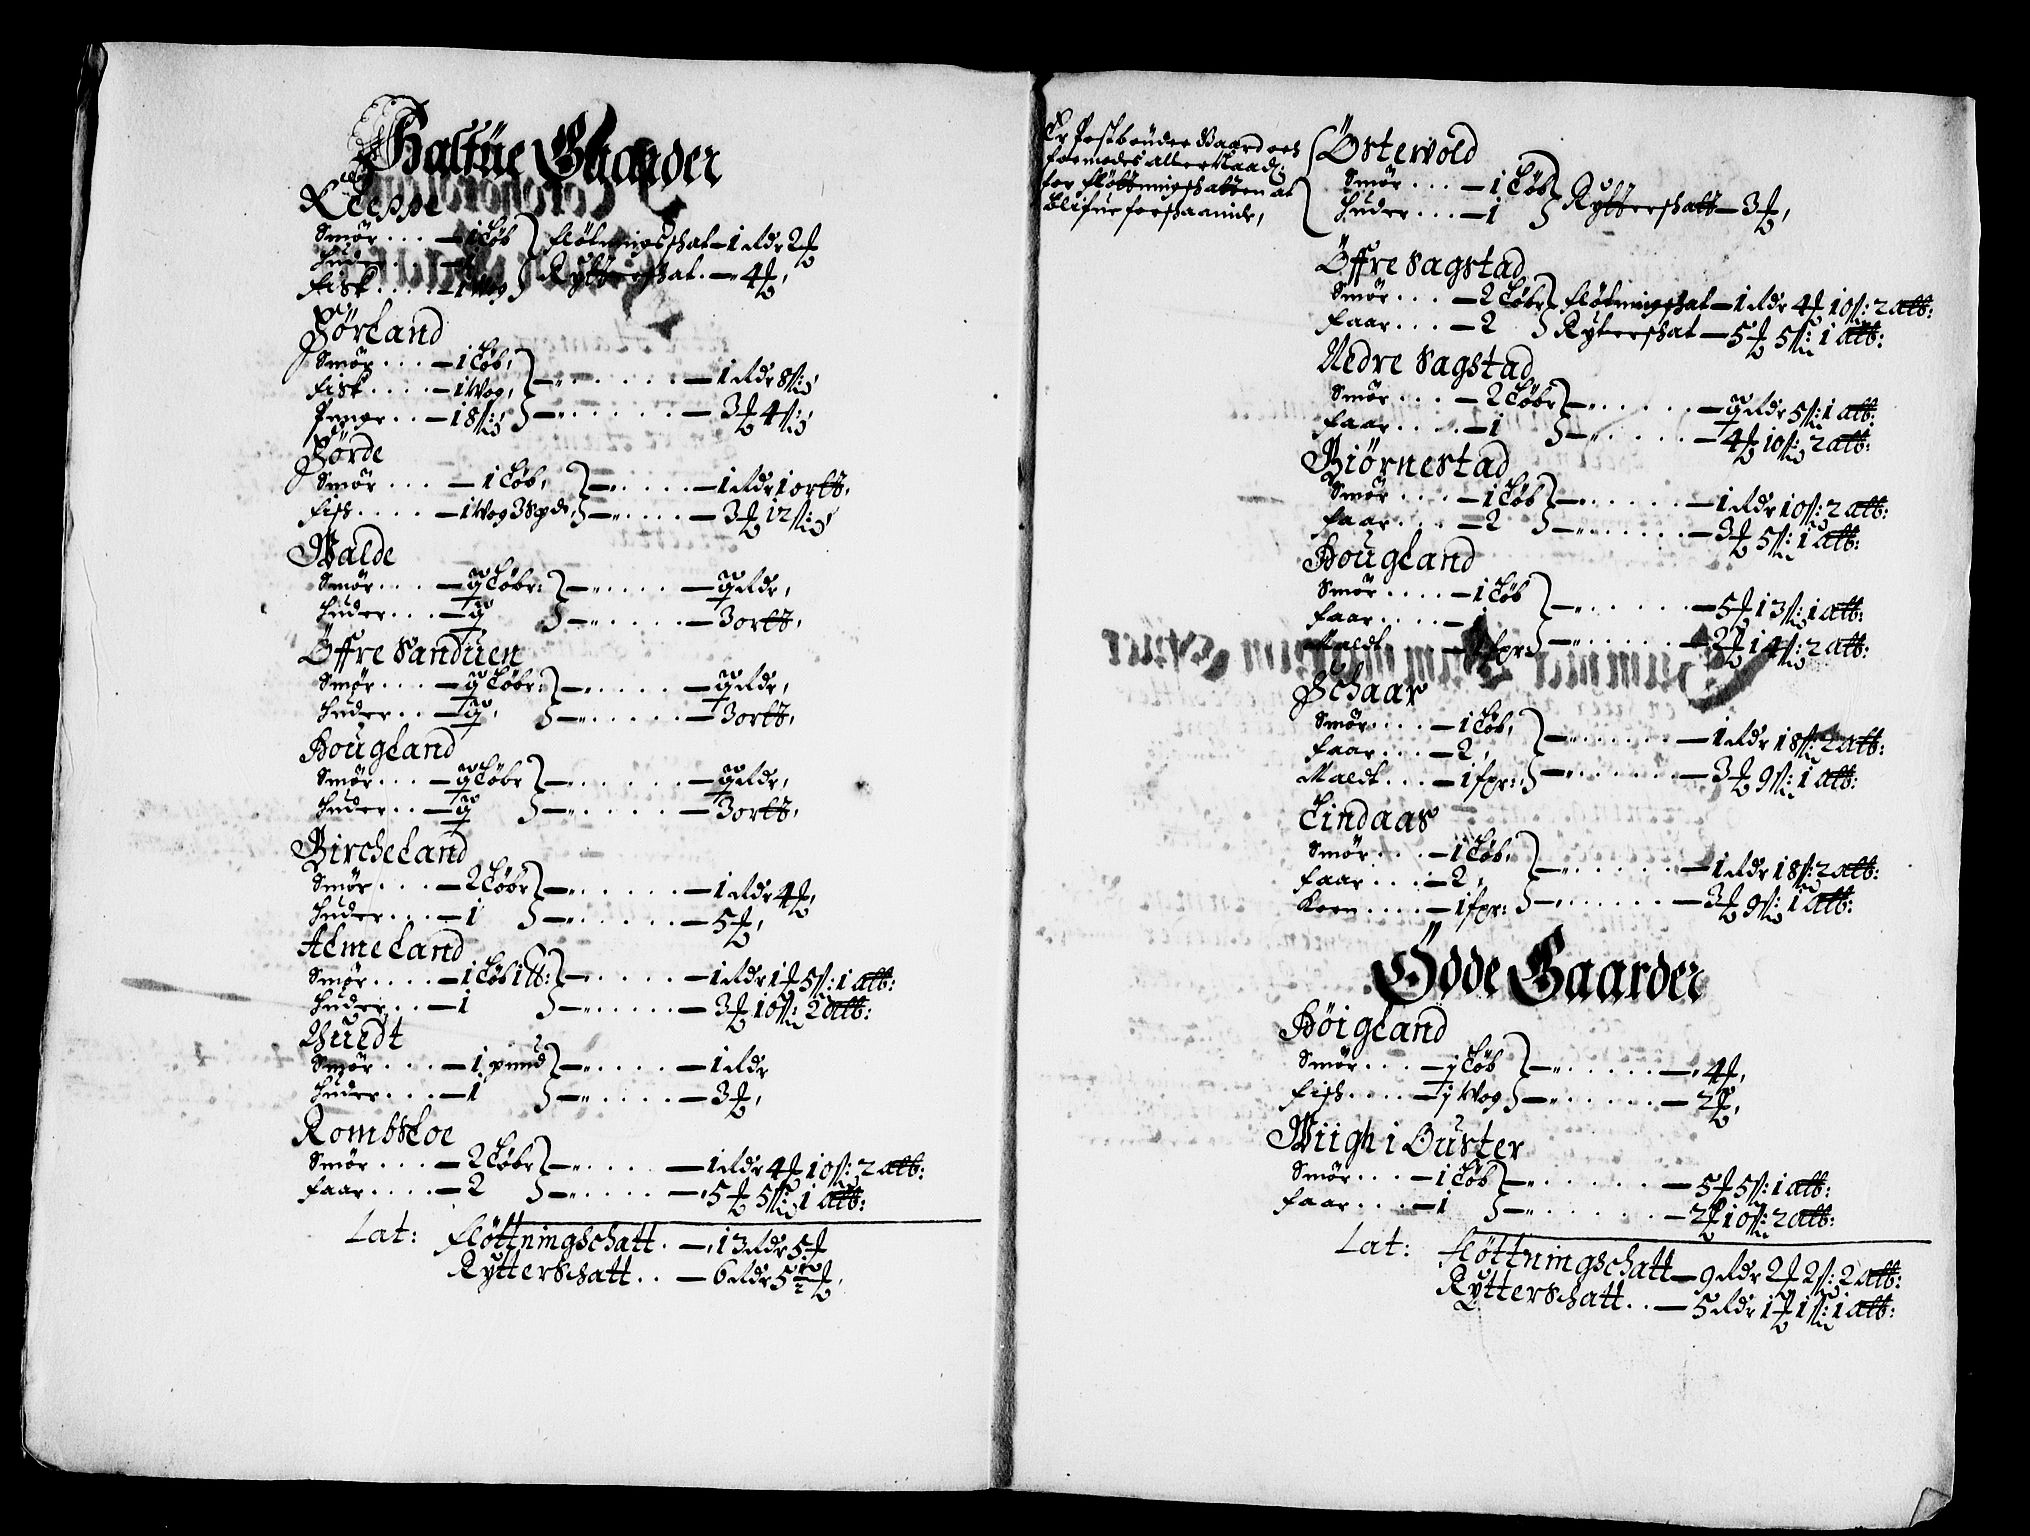 Halfue Gaarder
Leppe
Smör . . . — 1 Löb } flötningsschat — 1 Rdr 2 ₰
Huder . . — 1
Fisk . . . . — 1 Wog } Rytterschat . — 4 ₰,
Förland
Smör . . . — 1 Löb, } — „ . . . . . . — 1 Rdr 8 ß:
Fisk . . . . — 1 Wog,
Penge . . — 18 ß:, } — „ . . . . . — 3 ₰ 4 ß:,
Förde
Smör . . . — 1 Löb, } — „ . . . . — 1 Rdr 1 ortt,
Fisch . . . . — 1 Wog 3 Spd, } — „ . . . . — 3 ₰ 12 ß:
Walde
Smör . . . . — ½ Löbr: } — „ . . . . — ½ Rdr,
Huder . . . — ½ } — „ . . . . — 3 ortt,
Öffre Sanduen
Smör . . . — ½ Löbr: } — „ . . . . — ½ Rdr,
Huder . . — ½, } — „ . . . . . — 3 ortt,
Hougland
Smör . . . — ½ Löbr } — „ . . . . . — ½ Rdr,
Huder . . — ½ } — „ . . . . . — 3 ortt,
Bircheland
Smör . . . — 2 Löbr } — „ . . . . . — 1 Rdr 4 ₰,
Huder . . . — 1 } — „ . . . . . — 5 ₰,
Almeland
Smör . . . . — 1 Löb 1 tt: } — „ . . . . — 1 Rdr 1 ₰ 5 ß: 1 alb:
Huder . . . — 1 } — „ . . . . — 3 ₰ 10 ß: 2 alb:
Nuedt
Smör . . . . — 1 pund } — „ . . . . — 1 Rdr
Huder . . . — 1 } — „ . . . . — 3 ₰,
Rombsloe
Smör . . . — 2 Löbr } — „ . . . . — 1 Rdr 4 ₰ 10 ß: 2 alb:
Faar . . . . — 2 } — „ . . . . — 5 ₰ 5 ß: 1 alb:
Lat: flöttningschatt . — 13 Rdr 5 ₰
Rytterschatt . . — 6 Rdr 5 ½ ₰,
Er Postbönder Gaard och
formodes aller Naad:
for flöttningschatten at
blifue forschaanide,
Östewold
Smör . . . — 1 Löb } Rytterschatt — 3 ₰,
Huder . . . — 1
Öffre Sagstad
Smör . . . — 2 Löbr } flötningschat — 1 Rdr 4 ₰ 10 ß: 2 alb:
Faar . . . — 2 } Rytterschat — 5 ₰ 5 ß: 1 alb:
Nedre Sagstad
Smör . . . — 2 Löbr } — „ . . . . . — ½ Rdr 5 ß: 1 alb:
Faar . . . . — 1 } — „ . . . . . — 4 ₰ 10 ß: 2 alb:
Biörnestad
Smör . . . . — 1 Löb } — „ . . . . . — 1 Rdr 10 ß: 2 alb:
Faar . . . — 2 } — „ . . . . . . — 3 ₰ 5 ß: 1 alb:
Hougland
Smör . . . . — 1 Löb } — „ . . . . . — 5 ₰ 13 ß: 1 alb:
Faar . . . . — 1
Maldt . . — 1 fpr: } — „ . . . . . — 2 ₰ 14 ß: 2 alb:
Schaar
Smör . . . . — 1 Löb, } — „ . . . . . . — 1 Rdr 18 ß: 2 alb:
Faar . . . — 2,
Maldt . . . — 1 fpr:, } — „ . . . . . . — 3 ₰ 9 ß: 1 alb:
Lindaas
Smör . . . — 1 Löb, } — „ . . . . . . — 1 Rdr 18 ß: 2 alb:
Faar . . . — 2,
Korn . . . . — 1 fpr: } — „ . . . . . . — 3 ₰ 9 ß: 1 alb:
Öde Gaarder
Höigland
Smör . . . — ½ Löb } — „ . . . . . — 4 ₰,
Fisch . . . . — ½ Wog } — „ . . . . . — 2 ₰,
Wiigh i Ouster
Smör . . . — 1 Löb } — „ . . . . . . — 5 ₰ 5 ß: 1 alb:
Faar . . . — 1 } — „ . . . . . . — 2 ₰ 10 ß: 2 alb:
Lat: flöttningschatt — 9 Rdr 2 ₰ 2 ß: 2 alb:
Rytterschatt . . — 5 Rdr 1 ₰ 1 ß: 1 alb: